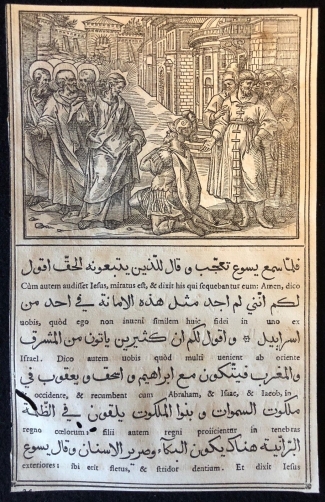 فلما سمع يسوع تعجب و قال للذين يتبعونه الحق اقول
Cùm autem audisset Iesus, miratus est, & dixit his qui sequebantur eum: Amen, dico
لكم انني لم اجد مثل هذه الامانة في احد من
uobis, quòd ego non inueni similem huic fidei in uno ex
اسراييل و اقول لكم ان كثيرين ياتون من المشرق
Israel. Dico autem uobis quòd multi uenient ab oriente
والمغرب فيتكون مع ابراهيم و اسحق و يعقوب في
& occidente, & recumbent cum Abraham, & Isaac, & Iacob, in
ملكوت السموات و بنوا الملكوت يلقون في الظلمة
regno cœlorum: filii autem regni proiicientur in tenebras
البرانية هناك يكون البكا وصرير الاسنان وقال يسوع
exteriores: ibi erit fletus, & stridor dentium. Et dixit Iesus